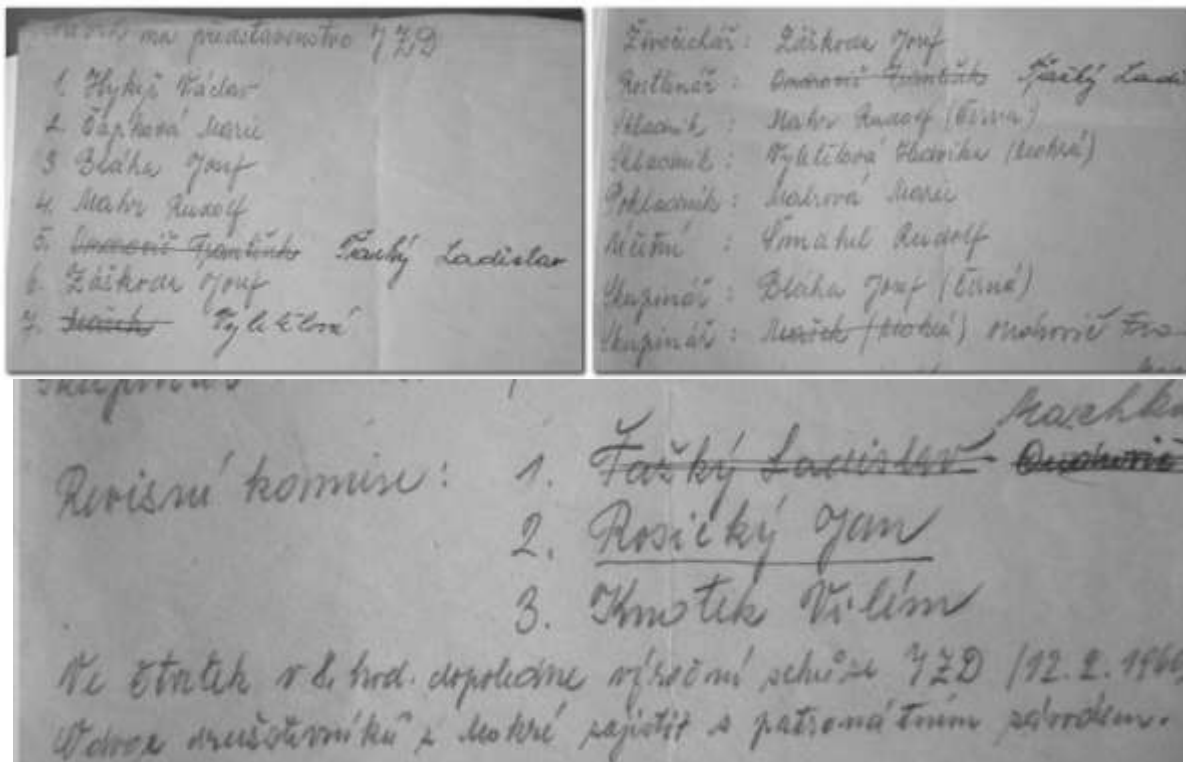 Návrh na představenstvo JZD
1. Hykyš Václav
2. Čápková Marie
3. Bláha Josef
4. Mahr Rudolf
5. František Ťažký Ladislav
6. Záškoda Josef
7. Vyletělová
Živočichář: Záškoda Josef
Rostlinář: František Ťažký
Skladník: Mahr Rudolf (Černá)
Skladník: Vyletělová (Mokrá)
Pokladník: Mahrová Marie
Účetní: Šmahel Rudolf
Skupinář: Bláha Josef (Černá)
Skupinář: (Mokrá)
Revisní komise: 1. Ťažký Ladislav
2. Rosický Jan
3. Kmotek Vilém
Ve čtvrtek v 8. hod. dopoledne výroční schůze JZD /12.2.
družstevníků z Mokré zajistit s patronátním závodem.